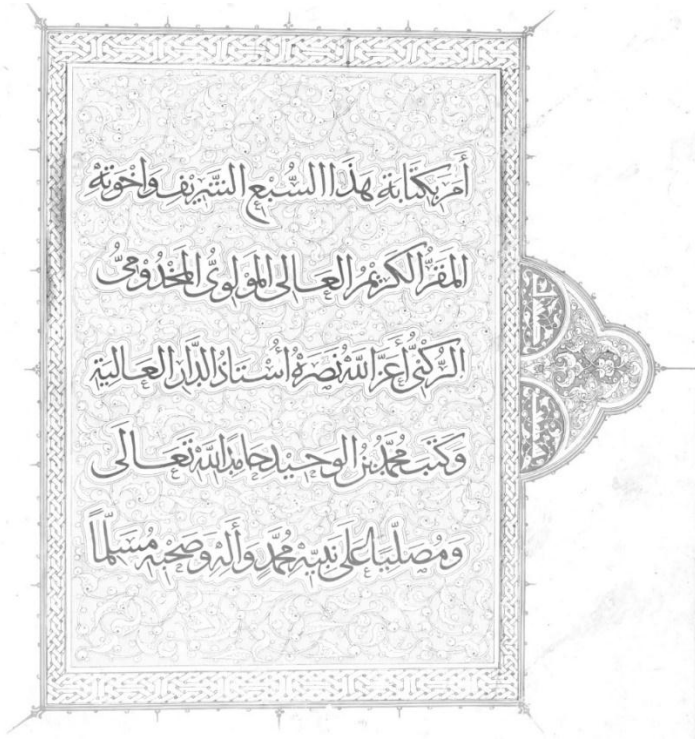 أَمَرَ بِكتَابَة هذَا السُّبع الشَّريْفِ وَاخْوَتِهْ
المَقَرُّ الكَريْمُ العَالى المَوْلَوىُّ المَخْدُوْمىُّ
الرُّكْنىُّ أَعَزَّ اللّهُ نُصَرَهُ أُسْتَاذُ الدَّار العَالية
وَكَتَبَ مُحَمَّدُ بْنُ الوَحِيْد حَامِدًا للّه تَعَالَى
وَمُصَلِّيًا عَلَى نَبيّه مُحَمَّدٍ وَأَلهْ وَصَحْبهْ مُسَلِّمًا